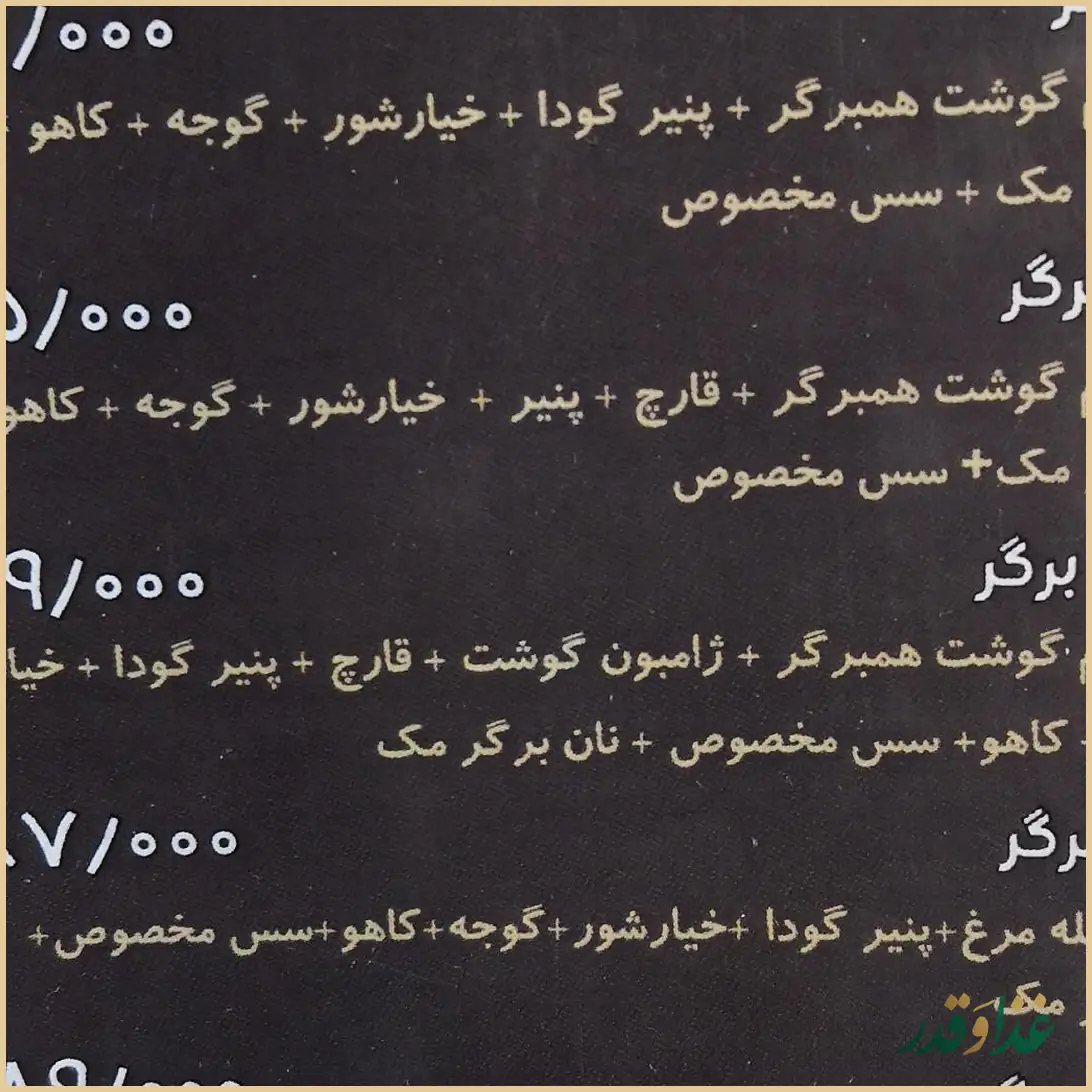 /۰۰۰
گوشت همبرگر + پنیر گودا + خیارشور + گوجه + کاهو
مک + سس مخصوص
برگر ۵/۰۰۰
گوشت همبرگر + قارچ + پنیر + خیارشور + گوجه + کاهو
مک+ سس مخصوص
برگر ۹/۰۰۰
گوشت همبرگر + ژامبون گوشت + قارچ + پنیر گودا + خیا
کاهو+ سس مخصوص + نان برگر مک
برگر ۷/۰۰۰
له مرغ+پنیر گودا +خیارشور+گوجه+کاهو+سس مخصوص+
مک
غذا و قدر